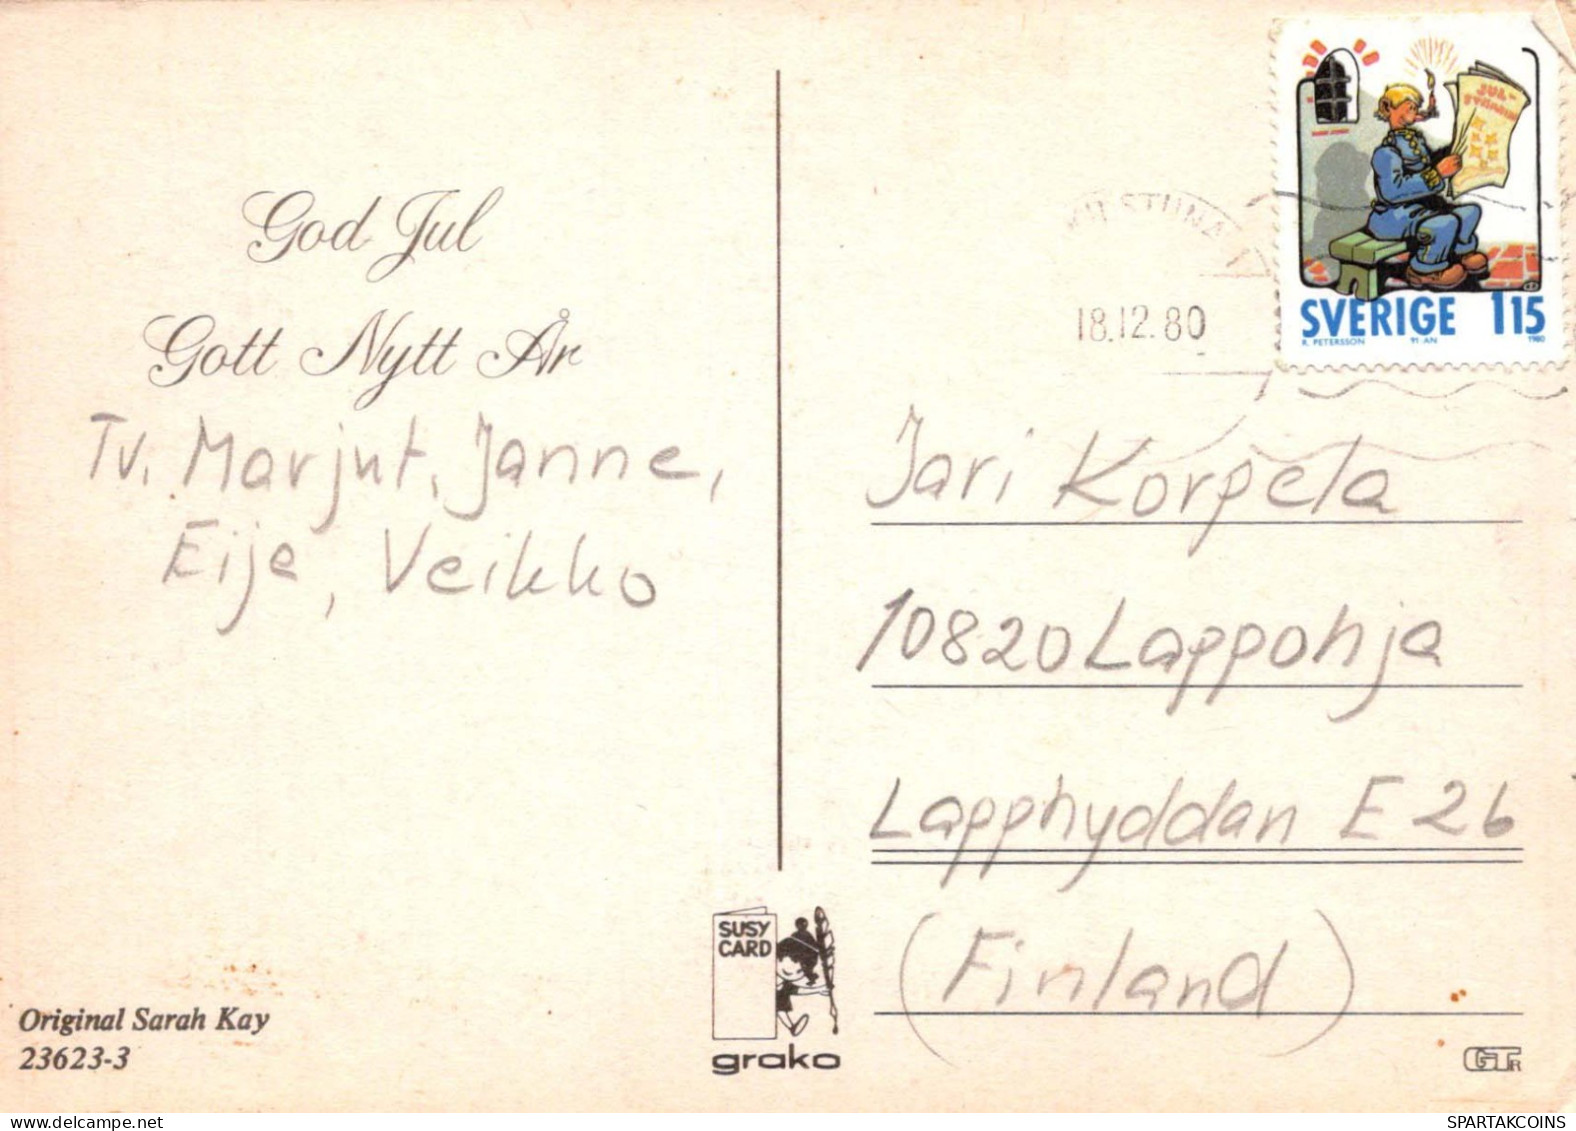 God Jul
Gott Nytt År
Tv. Marjut, Janne,
Eije, Veikko
Original Sarah Kay
23623-3
SUSY
CARD
grako
18.12.80
JUL-
SVERIGE 115
R. PETERSSON 91:AN 1980
Jari Korpela
10820 Lappohja
Lapphyddan E 26
(Finland)
SPARTAKCOINS